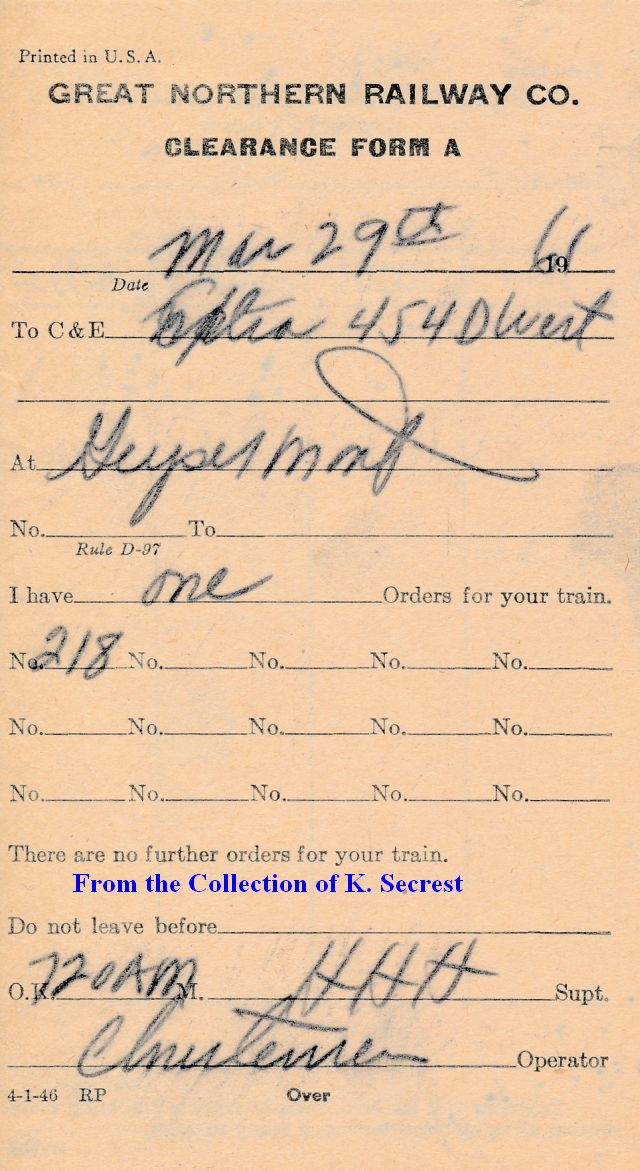 Printed in U.S.A.
GREAT NORTHERN RAILWAY CO.
CLEARANCE FORM A
Mar 29th 1961
Date
To C & E Extra 454D West
At Geyser Mont
No. To
Rule D-97
I have one Orders for your train.
No. 218 No. No. No. No.
No. No. No. No. No.
No. No. No. No. No.
There are no further orders for your train.
From the Collection of K. Secrest
Do not leave before
O.K. 720 AM M. HHH Supt.
Christensen Operator
4-1-46 RP Over